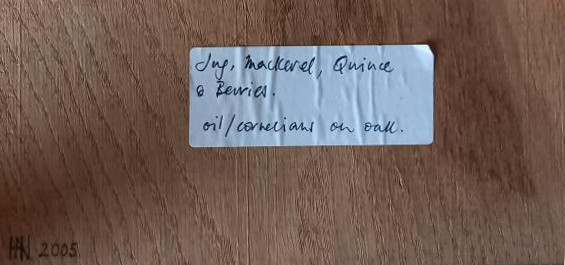 Jug, Mackerel, Quince
& Berries.
oil/cornelians on oak.
HN 2005